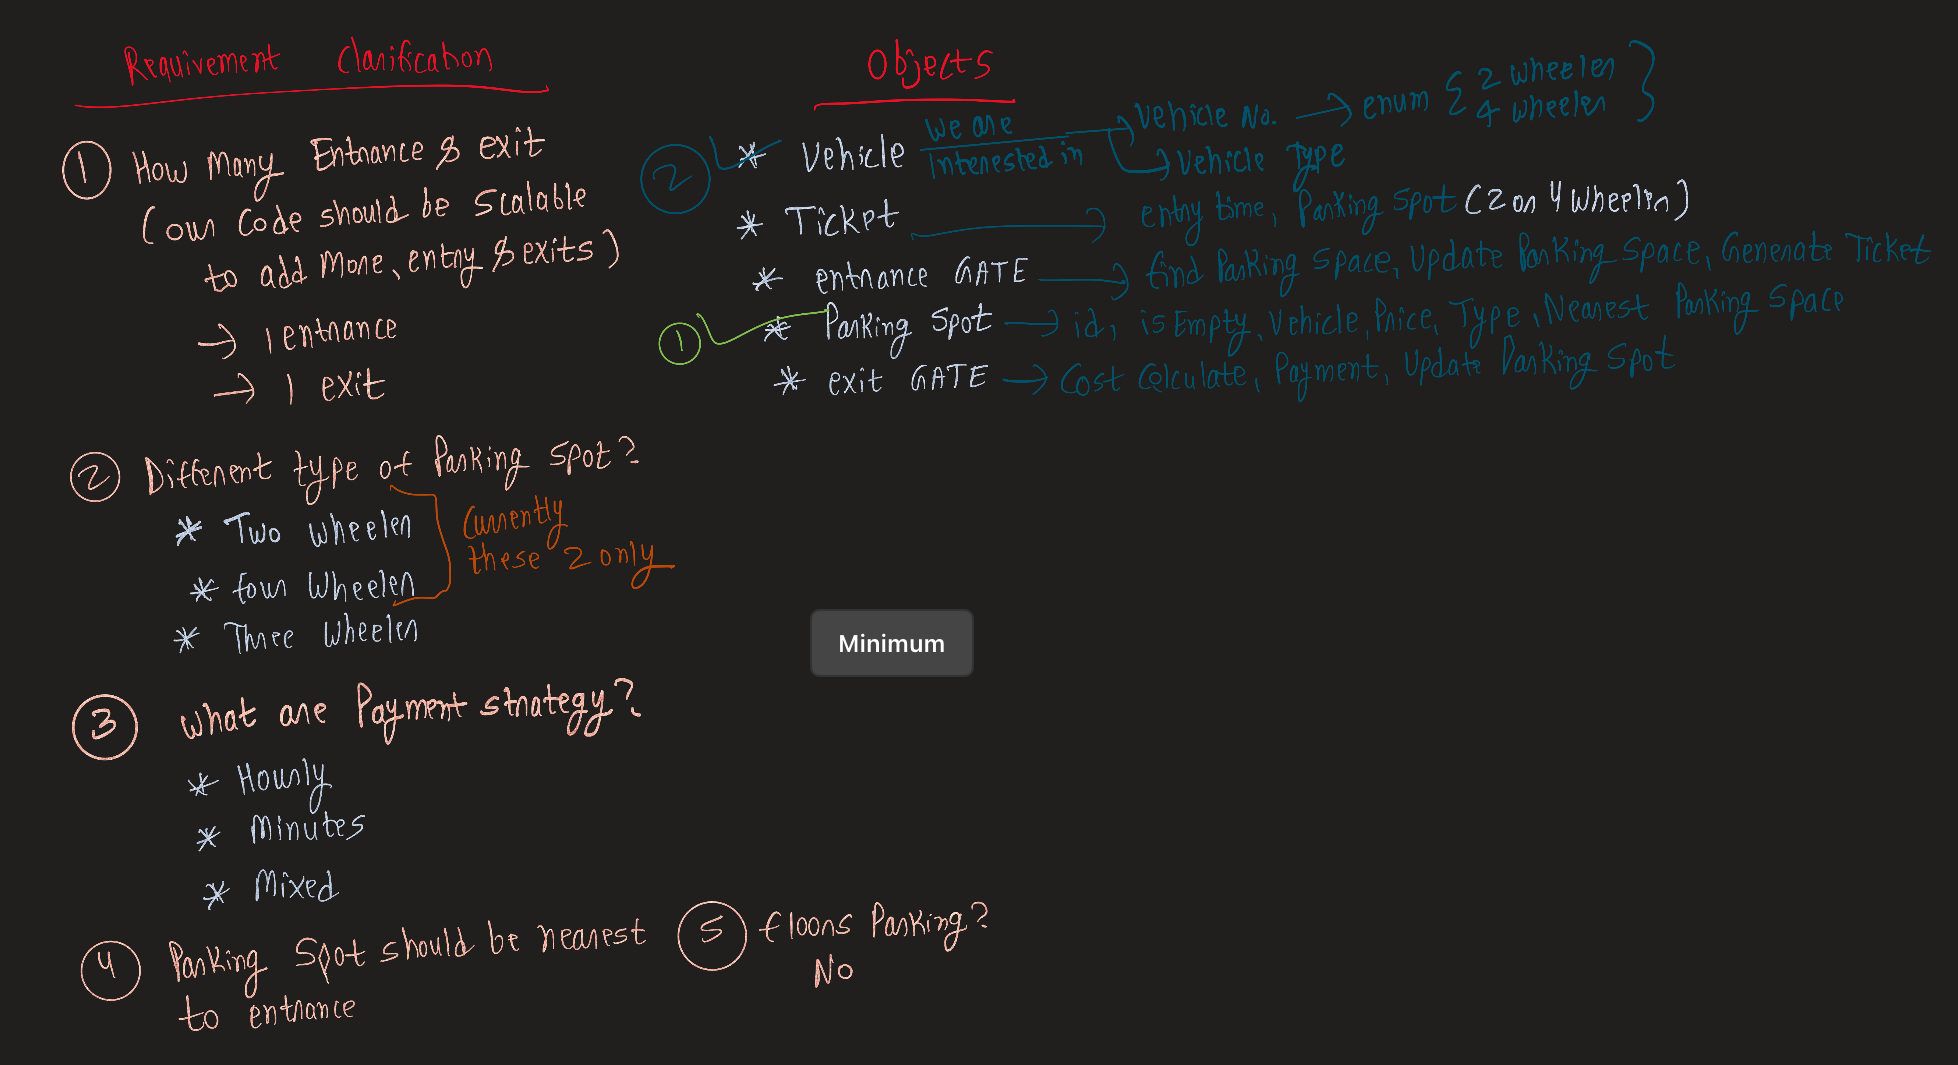 Requirement Clarification
① How Many Entrance & exit
(our Code should be Scalable
to add More, entry & exits)
→ 1 entrance
→ 1 exit
② Different type of Parking Spot?
* Two wheeler
* four Wheeler
* Three Wheeler
Currently
these 2 only
③ What are Payment strategy?
* Hourly
* Minutes
* Mixed
④ Parking Spot should be nearest
to entrance
⑤ floors Parking?
No
Objects
② * Vehicle We are Interested in → Vehicle No. → enum { 2 wheeler
4 wheeler }
→ Vehicle Type
* Ticket → entry time, Parking Spot (2 or 4 Wheeler)
* entrance GATE → find Parking Space, Update Parking Space, Generate Ticket
① * Parking Spot → id, isEmpty, Vehicle, Price, Type, Nearest Parking Space
* exit GATE → Cost Calculate, Payment, Update Parking Spot
Minimum